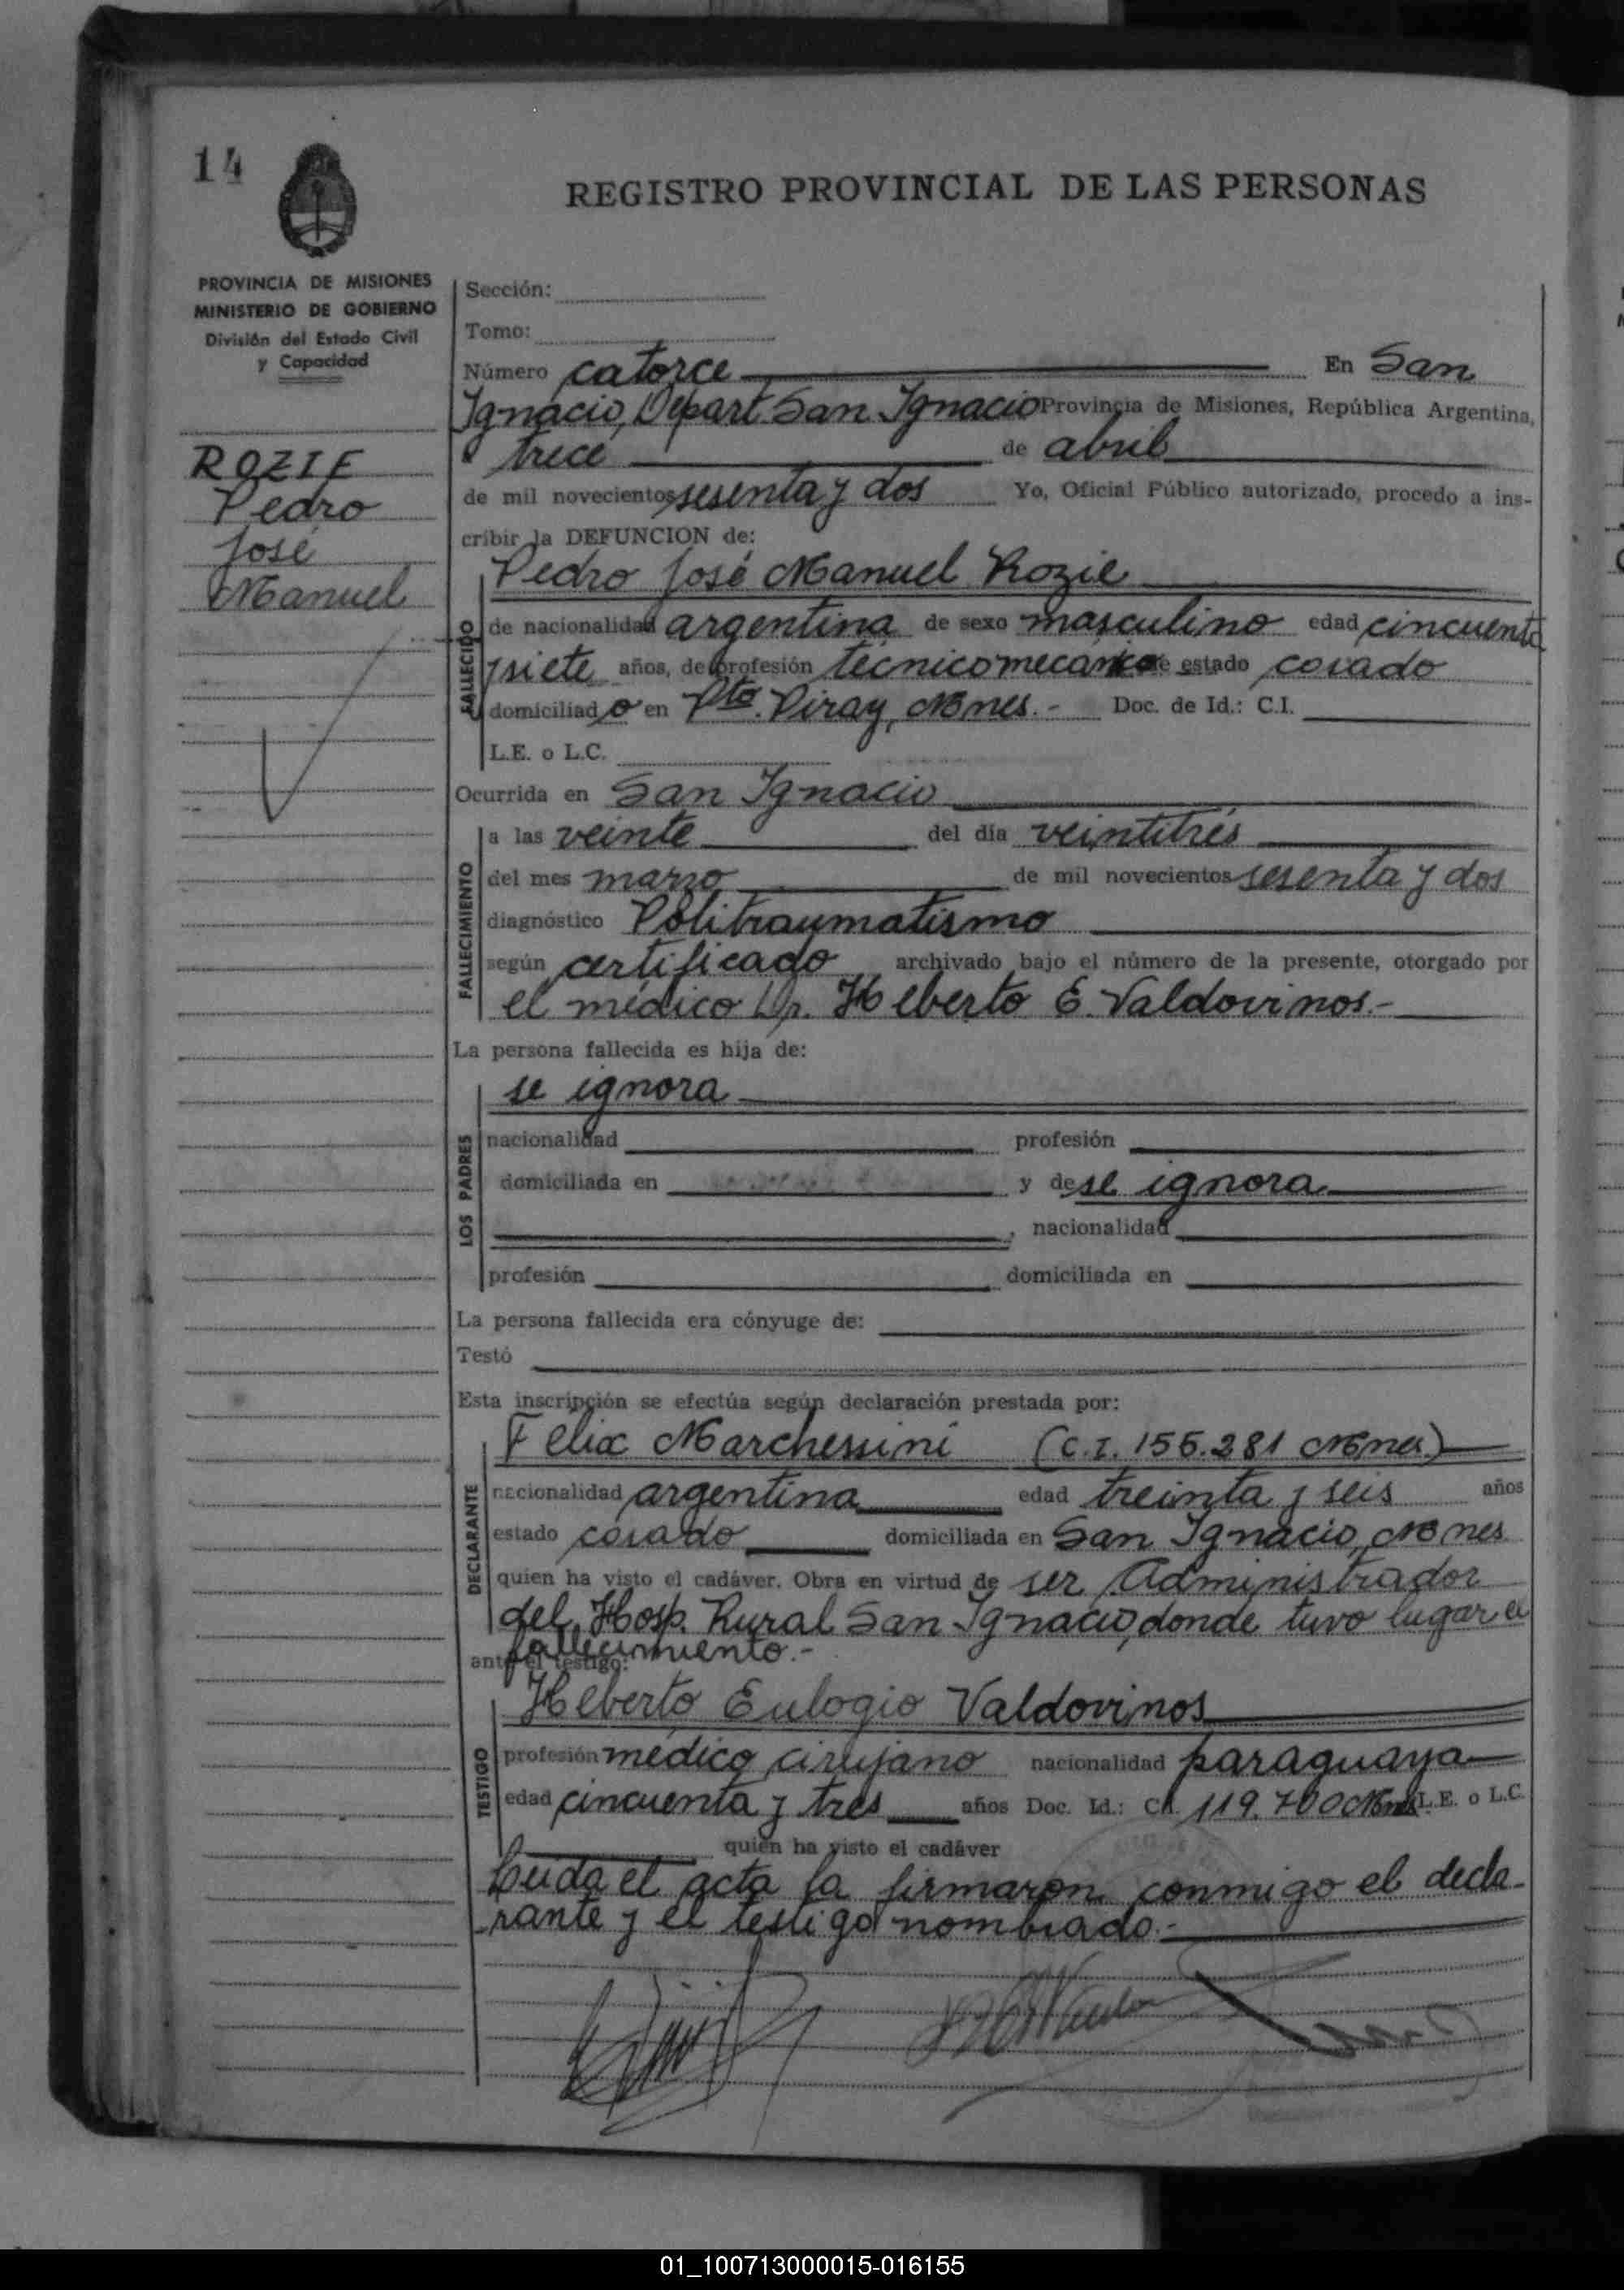 14
REGISTRO PROVINCIAL DE LAS PERSONAS
PROVINCIA DE MISIONES
MINISTERIO DE GOBIERNO
División del Estado Civil
y Capacidad
ROZIE
Pedro
José
Manuel
Sección:
Tomo:
Número catorce En San
Ignacio, Depart. San Ignacio Provincia de Misiones, República Argentina,
a trece de abril
de mil novecientos sesenta y dos Yo, Oficial Público autorizado, procedo a ins-
cribir la DEFUNCION de:
FALLECIDO
Pedro José Manuel Rozie
de nacionalidad argentina de sexo masculino edad cincuenta
y siete años, de profesión técnico mecánico de estado casado
domiciliado en Pto. Piray, Mnes.- Doc. de Id.: C.I.
L.E. o L.C.
Ocurrida en San Ignacio
FALLECIMIENTO
a las veinte del día veintitrés
del mes marzo de mil novecientos sesenta y dos
diagnóstico Politraumatismo
según certificado archivado bajo el número de la presente, otorgado por
el médico Dr. Heberto E. Valdovinos.-
La persona fallecida es hija de:
LOS PADRES
se ignora
nacionalidad profesión
domiciliada en y de se ignora
, nacionalidad
profesión domiciliada en
La persona fallecida era cónyuge de:
Testó
Esta inscripción se efectúa según declaración prestada por:
DECLARANTE
Felix Marchessini (C.I. 155.281 Mnes.)
nacionalidad argentina edad treinta y seis años
estado casado domiciliada en San Ignacio, Mnes
quien ha visto el cadáver. Obra en virtud de ser Administrador
del Hosp. Rural San Ignacio, donde tuvo lugar el
fallecimiento.-
ante el testigo:
TESTIGO
Heberto Eulogio Valdovinos
profesión médico cirujano nacionalidad paraguaya
edad cincuenta y tres años Doc. Id.: C.I. 119.700 Mnes L.E. o L.C.
quien ha visto el cadáver
Leida el acta la firmaron conmigo el decla-
rante y el testigo nombrado.-
01_100713000015-016155